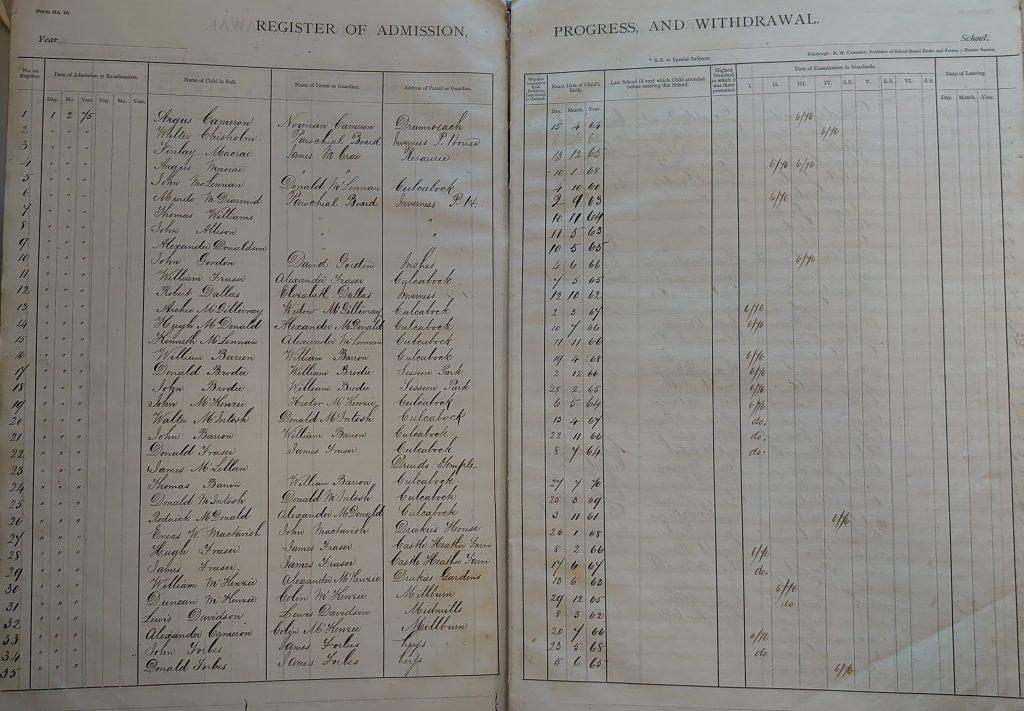 Form No. 10.
REGISTER OF ADMISSION, PROGRESS, AND WITHDRAWAL.
Year School.
* S.S. = Special Subjects. Edinburgh: R. M. Cameron, Publisher of School Board Books and Forms, 7 Hunter Square.
No. on Register. Date of Admission or Re-admission. Name of Child in Full. Name of Parent or Guardian. Address of Parent or Guardian. Exact Date of Child's Birth. Last School (if any) which Child attended before entering this School. Highest Standard in which it was there presented. Date of Examination in Standards. Date of Leaving.
Day. Mo. Year. Day. Mo. Year. Day. Month. Year. I. II. III. IV. S.S. V. S.S. VI. S.S. Day. Month. Year.
1 1 2 75 Angus Cameron Norman Cameron Drumosach 15 4 64 6/76
2 " " " Walter Chisholm Parochial Board Inverness P. House 6/76
3 " " " Finlay Macrae James McCrae Resaurie 13 12 65
4 " " " Angus Macrae " " " 10 1 68 6/76 6/76
5 " " " John McLennan Donald McLennan Culcabock 4 10 60
6 " " " Murdo McDiarmid Parochial Board Inverness P. H. 2 9 63 6/76
7 " " " Thomas Williams " " 10 11 64
8 " " " John Allison " " 11 5 63
9 " " " Alexander Donaldson 10 5 65
10 " " " John Gordon David Gordon Inshes 4 6 66 6/76
11 " " " William Fraser Alexander Fraser Culcabock 7 5 65
12 " " " Robert Dallas Elizabeth Dallas Inverness 12 10 62
13 " " " Archie McGillivray Widow McGillivray Culcabock 2 3 67 6/76
14 " " " Hugh McDonald Alexander McDonald Culcabock 10 7 66 6/76
15 " " " Kenneth McLennan Alexander McLennan Culcabock 11 11 66
16 " " " William Barron William Barron Culcabock 19 4 68 6/76
17 " " " Donald Brodie William Brodie Session Park 2 12 66 6/76
18 " " " John Brodie William Brodie Session Park 28 2 65 6/76
19 " " " John McKenzie Hector McKenzie Culcabock 6 5 64 6/76
20 " " " Walter McIntosh Donald McIntosh Culcabock 13 4 67 do.
21 " " " John Barron William Barron Culcabock 22 11 66 do.
22 " " " Donald Fraser James Fraser Culcabock 8 7 64 do.
23 " " " James McLellan Druids Temple
24 " " " Thomas Barron William Barron Culcabock 27 7 70
25 " " " Donald McIntosh Donald McIntosh Culcabock 25 3 69
26 " " " Roderick McDonald Alexander McDonald Culcabock 3 11 61 6/76
27 " " " Eneas W. Mactavish John Mactavish Drakies House 26 1 68
28 " " " Hugh Fraser James Fraser Castle Heather Farm 8 2 66 6/76
29 " " " James Fraser James Fraser Castle Heather Farm 17 6 67 do.
30 " " " William McKenzie Alexander McKenzie Drakies Gardens 13 6 63 6/76
31 " " " Duncan McKenzie Colin McKenzie Millburn 29 12 65 do
32 " " " Lewis Davidson Lewis Davidson Midmills 8 3 62
33 " " " Alexander Cameron Colin McKenzie Millburn 20 7 66 6/76
34 " " " John Forbes James Forbes Leys 23 5 68 do
35 " " " Donald Forbes James Forbes Leys 5 6 65 6/76